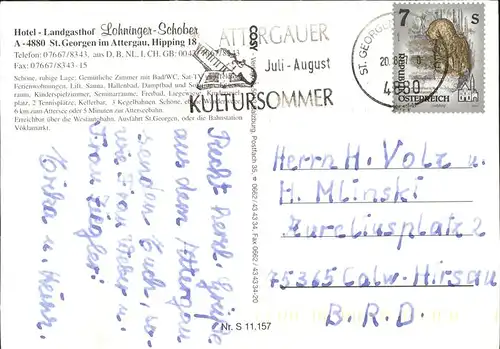 Hotel - Landgasthof Lohninger-Schober
A - 4880 St.Georgen im Attergau, Hipping 18
Telefon: 07667/8343, aus D, B, NL, I, CH, GB: 0043
Fax: 07667/8343-15
Schöne, ruhige Lage: Gemütliche Zimmer mit Bad/WC,
Ferienwohnungen, Lift, Sauna, Hallenbad, Dampfbad und
raum, Kinderspielzimmer, Seminarräume, Freibad, Liegewiese,
platz, 2 Tennisplätze, Kellerbar, 3 Kegelbahnen
6 km zum Attersee oder 5 Minuten zur Autoseebahn.
Erreichbar über die Westautobahn, Ausfahrt St.Georgen, oder die Bahnstation
Vöklamarkt.
ATTERGAUER
Juli - August
KULTURSOMMER
ST. GEORGEN
4880
7 S
REPUBLIK
ÖSTERREICH
COSY
Salzburg, Postfach 35, ☎ 0662/43 43 34, Fax 0662/43 43 34-20
Recht herzl. Grüße
aus dem Attergau
senden Euch, so-
wie Frau Weber u.
Frau Ziegler:
Erika u. Heinz.
Herrn H. Volz u.
H. Mlinski
Aureliusplatz 2
75365 Calw-Hirsau
B.R.D.
Nr. S 11,157